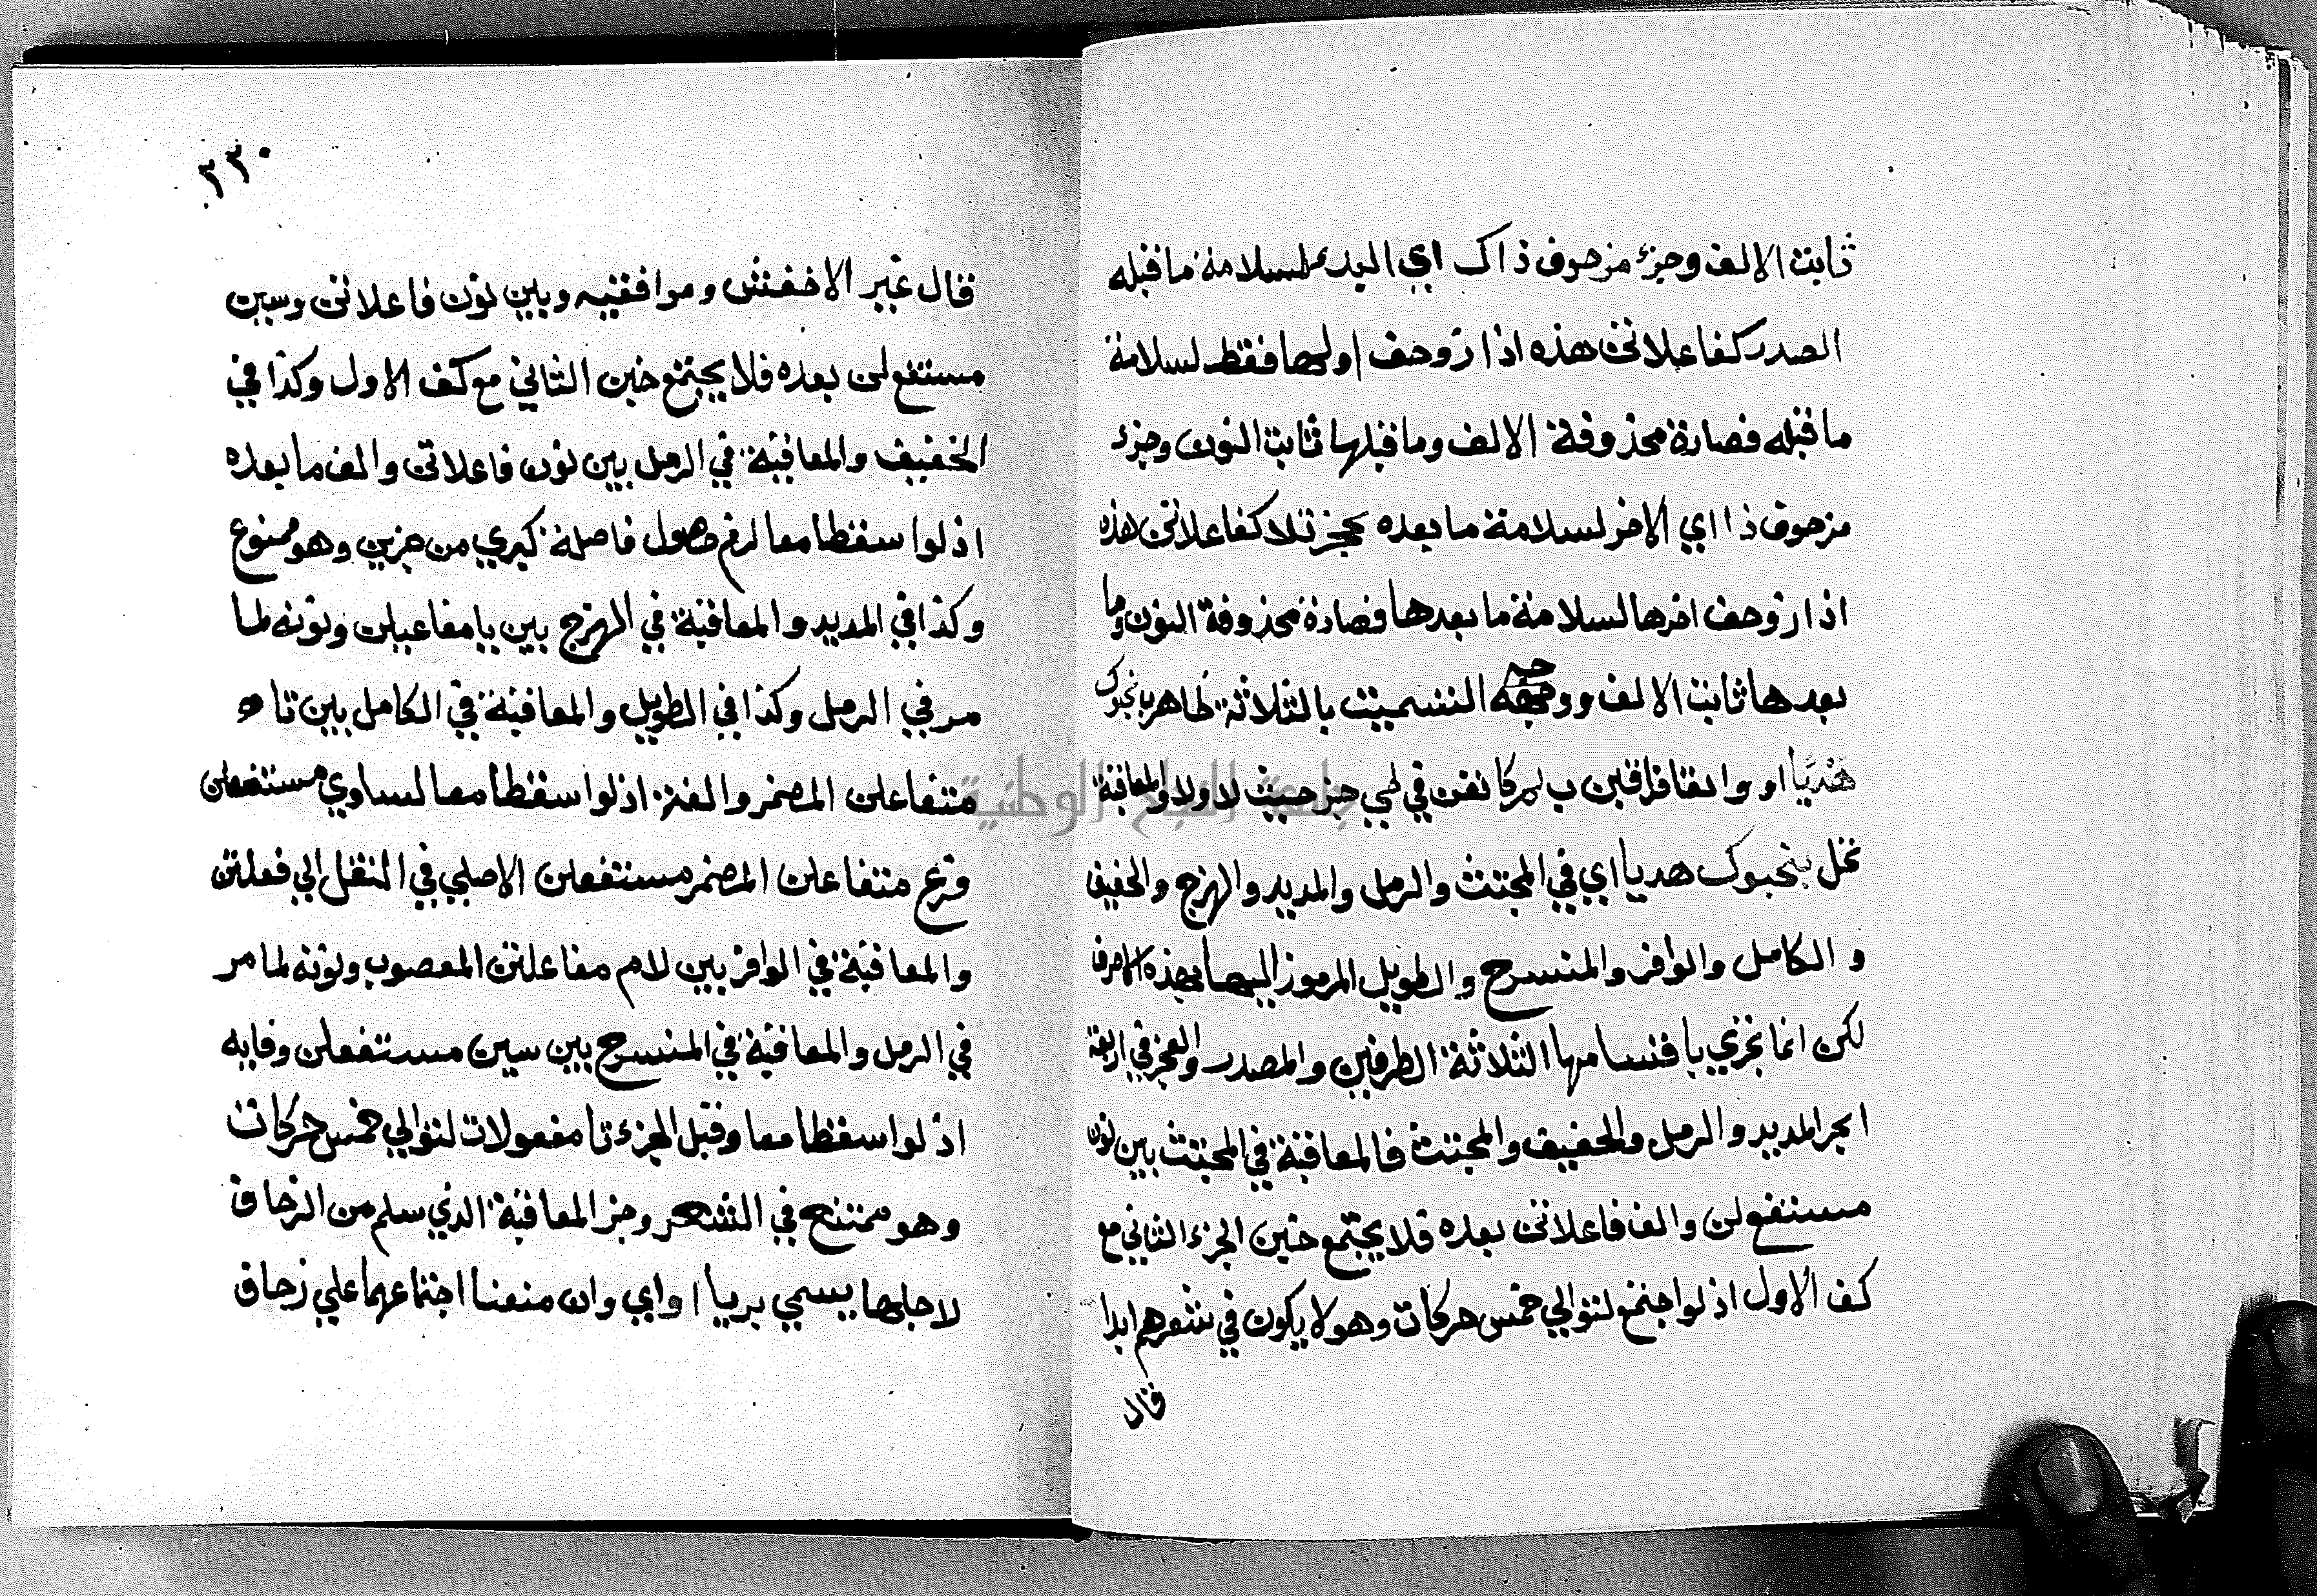 ثابت الالف وجزء مزحوف ذاك اي البدء لسلامة ما قبله
الصدر كفاعلاتن هذه اذا زوحف اولها فقط لسلامة
ما قبله فصارة محذوفة الالف وما قبلها ثابت النون وجزء
مزحوف ذا اي الاخر لسلامة ما بعده عجز تلا كفاعلاتن هذه
اذا زوحف اخرها لسلامة ما بعدها فصارة محذوفة النون وما
بعدها ثابت الالف ووجه التسميت بالثلاثة ظاهر بنحبوك
هديا او وانقا فراقبن ب لم كانفن في لهي حيث لا ولا والمعاقبة
تحل بنحبوك هديا اي في المجتث والرمل والمديد والهزج والخفيف
والكامل والوافر والمنسرح والطويل المرموز اليها بهذه الاحرف
لكن انما تجري باقسامها الثلاثة الطرفين والمصدر والعجز في اربعة
ابحر المديد والرمل والخفيف والمجتث فالمعاقبة في المجتث بين نون
مستفع لن والف فاعلاتن بعده فلا يجتمع خبن الجزء الثاني مع
كف الاول اذ لو اجتمع لتوالي خمس حركات وهو لا يكون في شعرهم ابدا
قال
٣٣٠
قال غير الاخفش وموافقيه وبين نون فاعلاتن وسين
مستفع لن بعده فلا يجتمع خبن الثاني مع كف الاول وكذا في
الخفيف والمعاقبة في الرمل بين نون فاعلاتن والف ما بعده
اذ لو اسقطا معا لزم حصول فاصلة كبري من جزين وهو ممنوع
وكذا في المديد والمعاقبة في الهزج بين يا مفاعيلن ونونه لما
مر في الرمل وكذا في الطويل والمعاقبة في الكامل بين تاء
متفاعلن المضمر والفه اذ لو اسقطا معا لساوي مستفعلن
فرع متفاعلن المضمر مستفعلن الاصلي في النقل الي فعلتن
والمعاقبة في الوافر بين لام مفاعلتن المعصوب ونونه لما مر
في الرمل والمعاقبة في المنسرح بين سين مستفعلن وفايه
اذ لو اسقطا معا وقبل الجزء تا مفعولات لتوالي خمس حركات
وهو ممتنع في الشعر وجز المعاقبة الذي سلم من الزحاف
لاجلها يسمي بريا او اي وان منعنا اجتماعهما علي زحاف